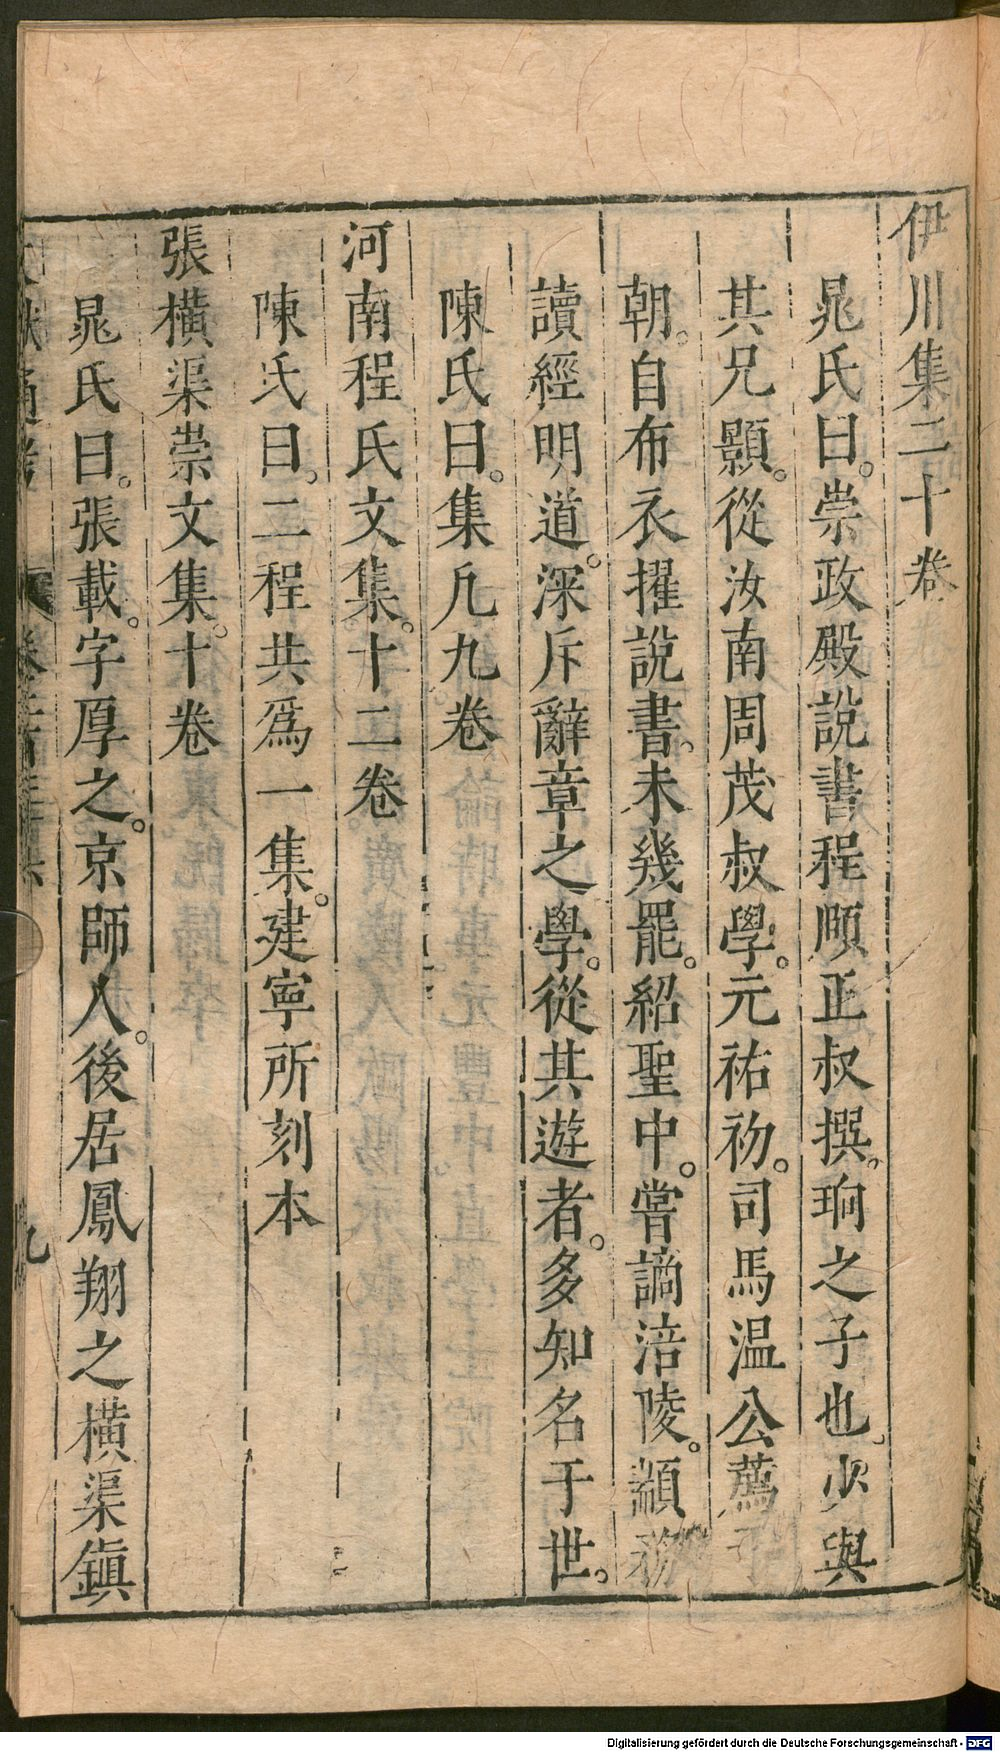 伊川集二十卷
晁氏曰。崇政殿說書程頤正叔撰。珦之子也。少與
其兄顥。從汝南周茂叔學。元祐初。司馬温公薦
朝。自布衣擢說書。未幾罷。紹聖中。嘗謫涪陵。顓務
讀經明道。深斥辭章之學。從其遊者。多知名于世。
陳氏曰。集凡九卷
河南程氏文集。十二卷
陳氏曰。二程共爲一集。建寧所刻本
張橫渠崇文集。十卷
晁氏曰。張載。字厚之。京師人。後居鳳翔之橫渠鎮
九
Digitalisierung gefördert durch die Deutsche Forschungsgemeinschaft - DFG